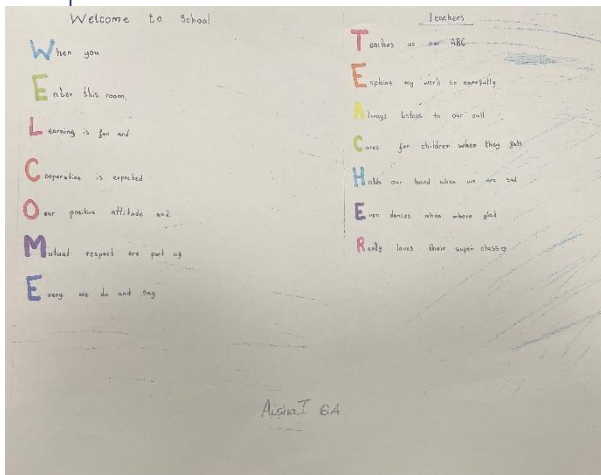 Welcome to School
When you
Enter this room,
Learning is fun and
Cooperation is expected
Our positive attitude and
Mutual respect are part of
Every we do and say
Teachers
Teaches us our ABC
Explains my work so carefully
Always listens to our call
Cares for children when they fall
Holds our hand when we are sad
Even dances when where glad
Really loves their super class
Aisha T 6A